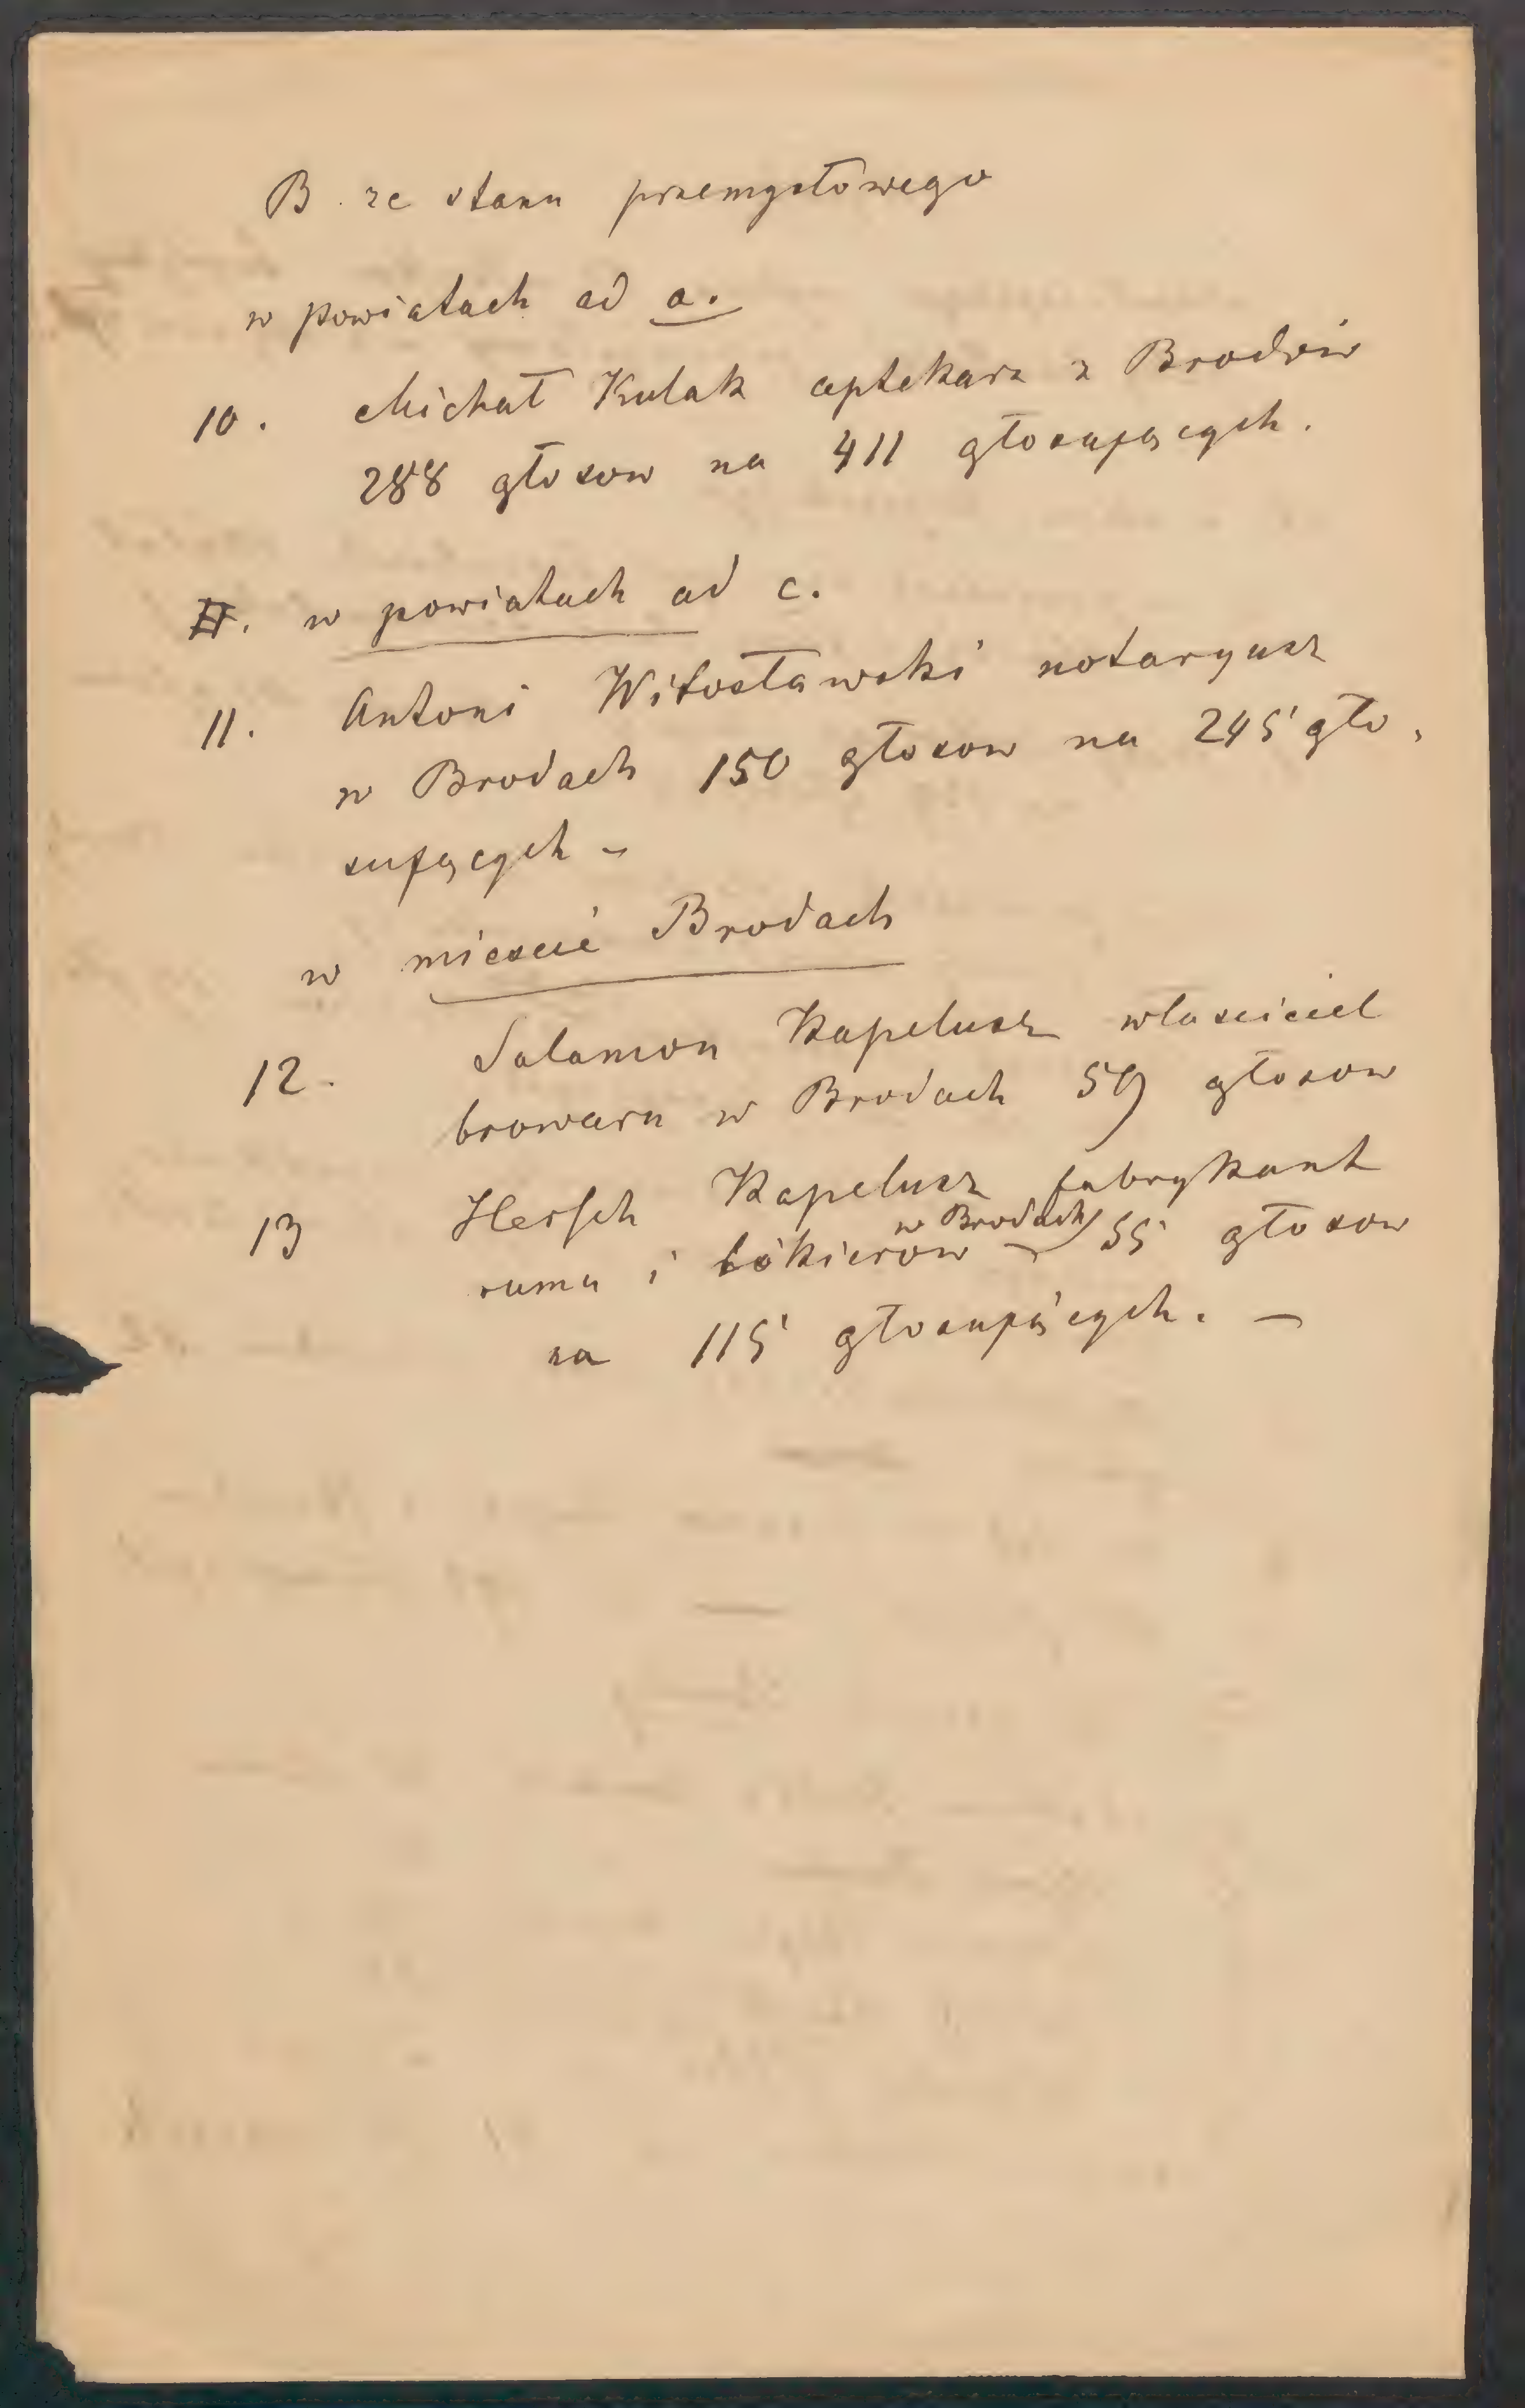 B. ze stanu przemysłowego
w powiatach ad a.
10. Michał Kulak aptekarz z Brodów
288 głosow na 411 głosujących.
II. w powiatach ad c.
11. Antoni Witosławski notaryusz
w Brodach 150 głosow na 245 gło,
sujących -
w miescie Brodach
12. Salamon Kapelusz wlasciciel
browaru w Brodach 59 głosow
13 Hersch Kapelusz fabrykant
w Brodach
rumu i likierów 55 głosow
na 115 głosujących. -